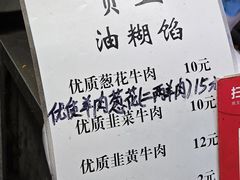 油糊馅
优质葱花牛肉 10元
优质羊肉葱花(二两羊肉)15元
优质韭菜牛肉 10
优质韭黄牛肉 12
2元
扫